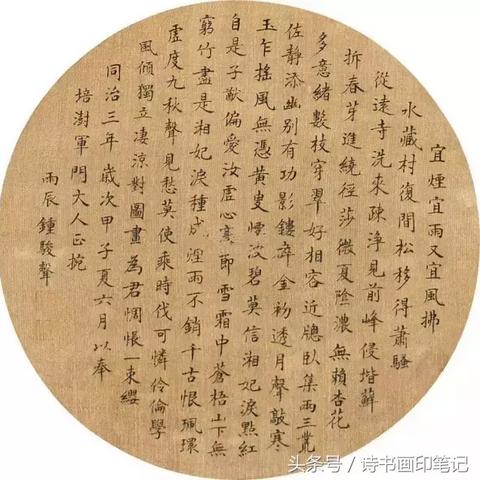 宜煙宜雨又宜風拂
水藏村復間松移得蕭騷
從遠寺洗來疎淨見前峰侵堦蘚
拆春芽進繞徑莎微夏陰濃無賴杏花
多意緒數枝穿翠好相容近牕臥集兩三叢
佐靜添幽別有功影鏤碎金初透月聲敲寒
玉乍搖風無憑黃叟煙波碧莫信湘妃淚點紅
自是子猷偏愛汝虛心寒節雪霜中蒼梧山下無
窮竹盡是湘妃淚種成煙雨不銷千古恨珮環
虛度九秋聲見愁莫使乘時伐可憐伶倫學
風傾獨立淒涼對圖畫為君惆悵一束纓
同治三年歲次甲子夏六月以奉
培澍軍門大人正
雨辰鍾駿聲
头条号／诗书画印笔记